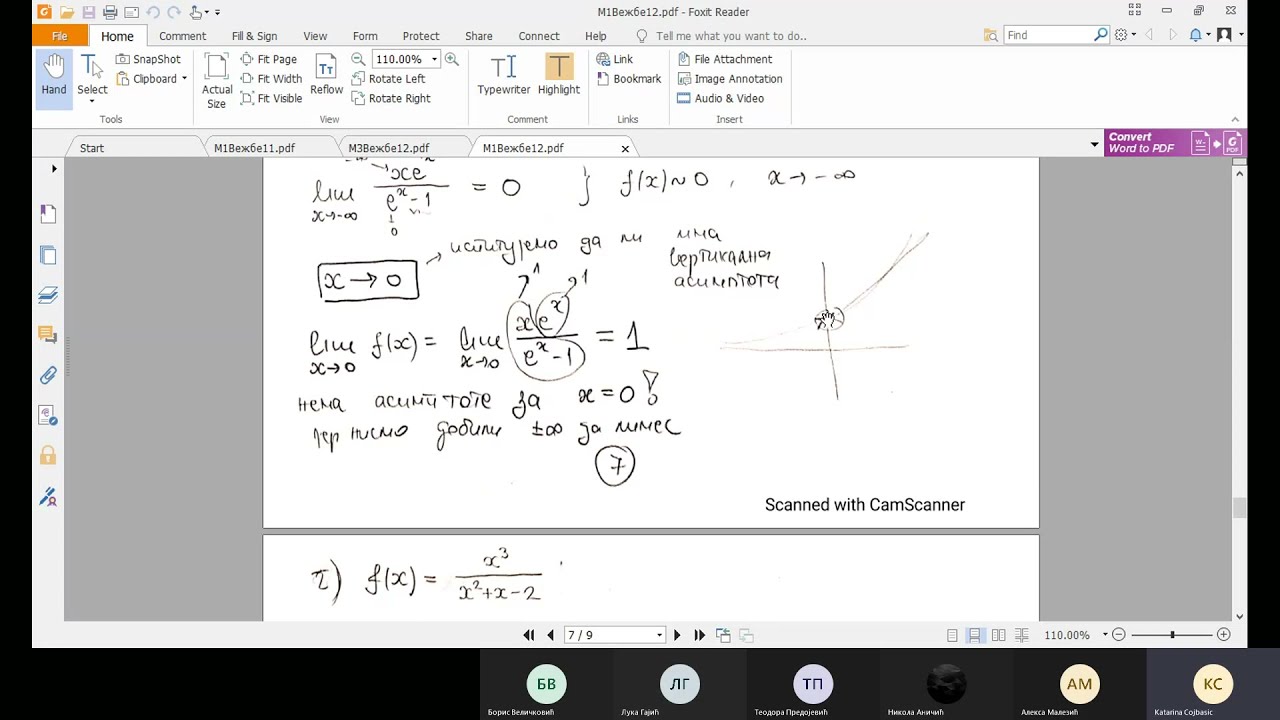 М1Вежбе12.pdf - Foxit Reader
File Home Comment Fill & Sign View Form Protect Share Connect Help Tell me what you want to do.. Find
SnapShot Fit Page 110.00% Link File Attachment
Clipboard Fit Width Rotate Left Bookmark Image Annotation
Hand Select Actual Size Fit Visible Reflow Rotate Right Typewriter Highlight Audio & Video
Tools View Comment Links Insert
Start М1Вежбе11.pdf М3Вежбе12.pdf М1Вежбе12.pdf Convert Word to PDF
lim x→-∞ xe^x / e^x - 1 = 0 } f(x) ~ 0 , x → -∞
0
x → 0 → испитујемо да ли има
вертикална
асимптота
1 1
lim x→0 f(x) = lim x→0 xe^x / e^x - 1 = 1
нема асимптоте за x = 0 !
јер нисмо добили ±∞ за лимес
7
Scanned with CamScanner
г) f(x) = x³ / x² + x - 2
7 / 9 110.00%
БВ ЛГ ТП АМ KC
Борис Величковић Лука Гајић Теодора Предојевић Никола Аничић Алекса Малезић Katarina Cojbasic